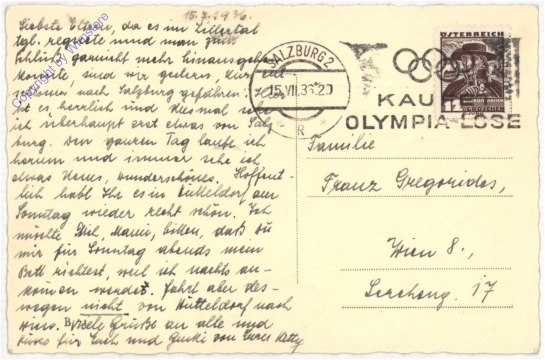 15.7.1936.
Liebste Eltern, da es im Zillertal
tgl. regnete und man zum
Schluß garnicht mehr hinausgehen
konnte, sind wir gestern,
nach Salzburg gefahren.
ist es herrlich und diesmal sehe
ich überhaupt erst etwas von Salz-
burg. Den ganzen Tag laufe ich
herum und immer sehe ich
etwas Neues, wunderschönes. Hoffent-
lich habt Ihr es in Hütteldorf am
Sonntag wieder recht schön. Ich
möchte Dich, Mami, bitten, daß Du
mir für Sonntag abends mein
Bett richtest, weil ich nachts an-
kommen werde. Fahrt aber des-
wegen nicht von Hütteldorf nach
Wien. Viele Grüße an alle und
Küsse für Euch und von Eurer Ketty
Copyright by Webstore
SALZBURG 2
15.VII.36.20
R
KAU
OLYMPIA-LOSE
ÖSTERREICH
12
Familie
Franz Gregorides,
Wien 8.,
Lercheng. 17